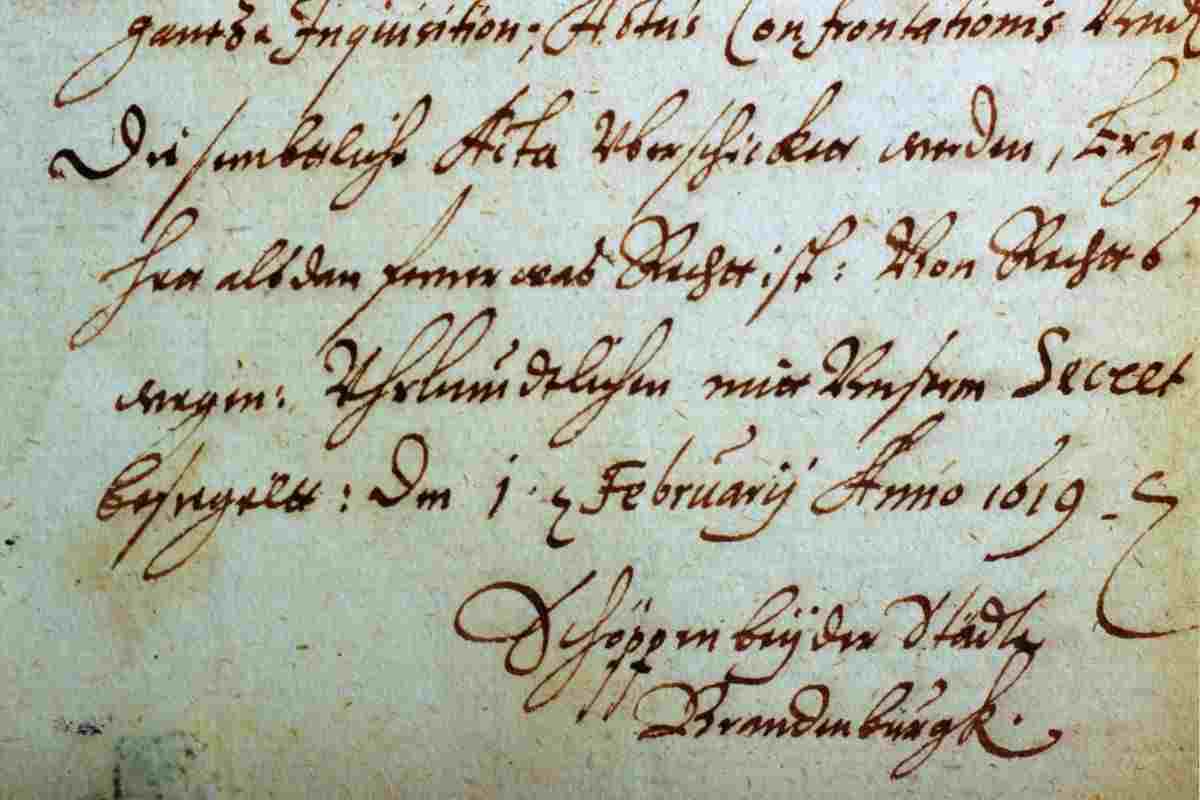 gantze Inquisition, Actus Confrontationis Vnd
Die sembtliche Acta Vberschicket werden, Erge
hett alsdan ferner was Recht ist: Von Rechtts
wegen: Vhrkundtlichen mitt Vnserm Secret
besiegeltt: Den 1 Februarij Anno 1619
Schöppen beÿder Städte
Brandenburgk.